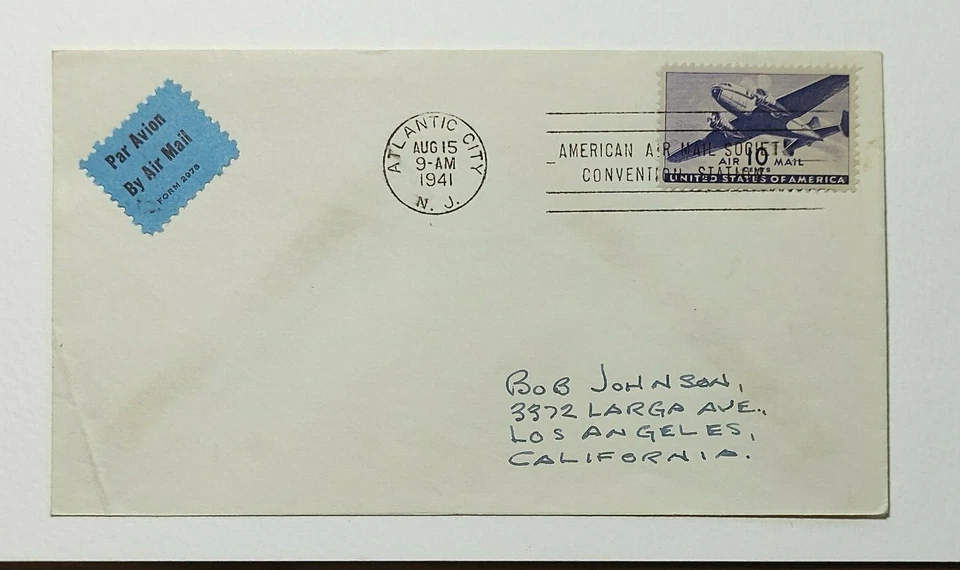 Par Avion
By Air Mail
FORM 2978
ATLANTIC CITY
AUG 15
9-AM
1941
N. J.
AMERICAN AIR MAIL SOCIETY
CONVENTION STATION
10
CENTS
AIR MAIL
UNITED STATES OF AMERICA
BOB JOHNSON,
3372 LARGA AVE.,
LOS ANGELES,
CALIFORNIA.